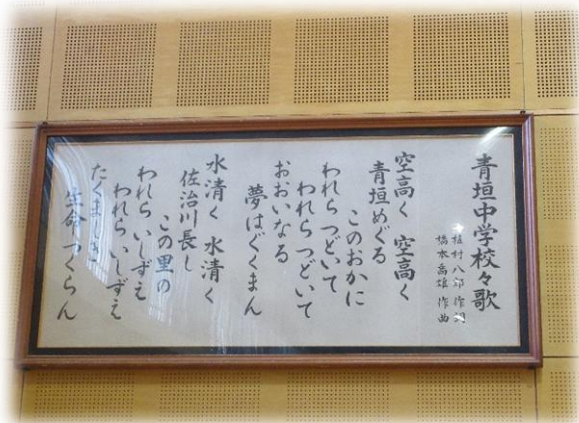 青垣中学校々歌
植村八郎 作詞
橋本喬雄 作曲
空高く 空高く
青垣めぐる
このおかに
われらつどいて
われらつどいて
おおいなる
夢はぐくまん
水清く 水清く
佐治川長し
この里の
われらいしずえ
われらいしずえ
たくましき
生命つくらん